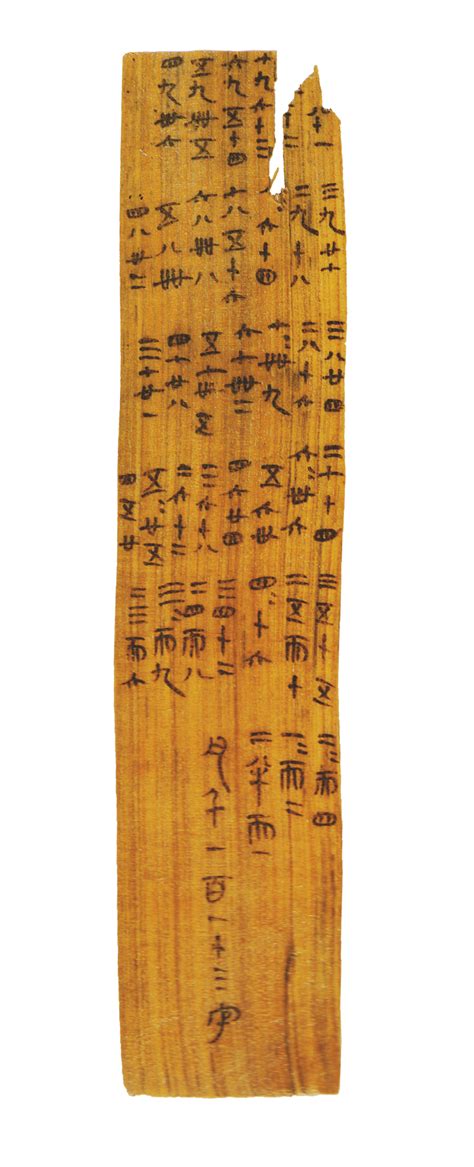 八十一
二
七九六十三
六九五十四
五九卌五
四九卅六
三九廿七
二九十八
八=六十四
七八五十六
六八卌八
五八卌
四八卅二
三八廿四
二八十六
七=卌九
六七卌二
五七卅五
四七廿八
三七廿一
二七十四
六=卅六
五六卅
四六廿四
三六十八
二六十二
五=廿五
四五廿
三五十五
二五而十
四=十六
三四十二
二四而八
三=而九
二三而六
二=而四
一=而二
二半而一
凡千一百一十三字